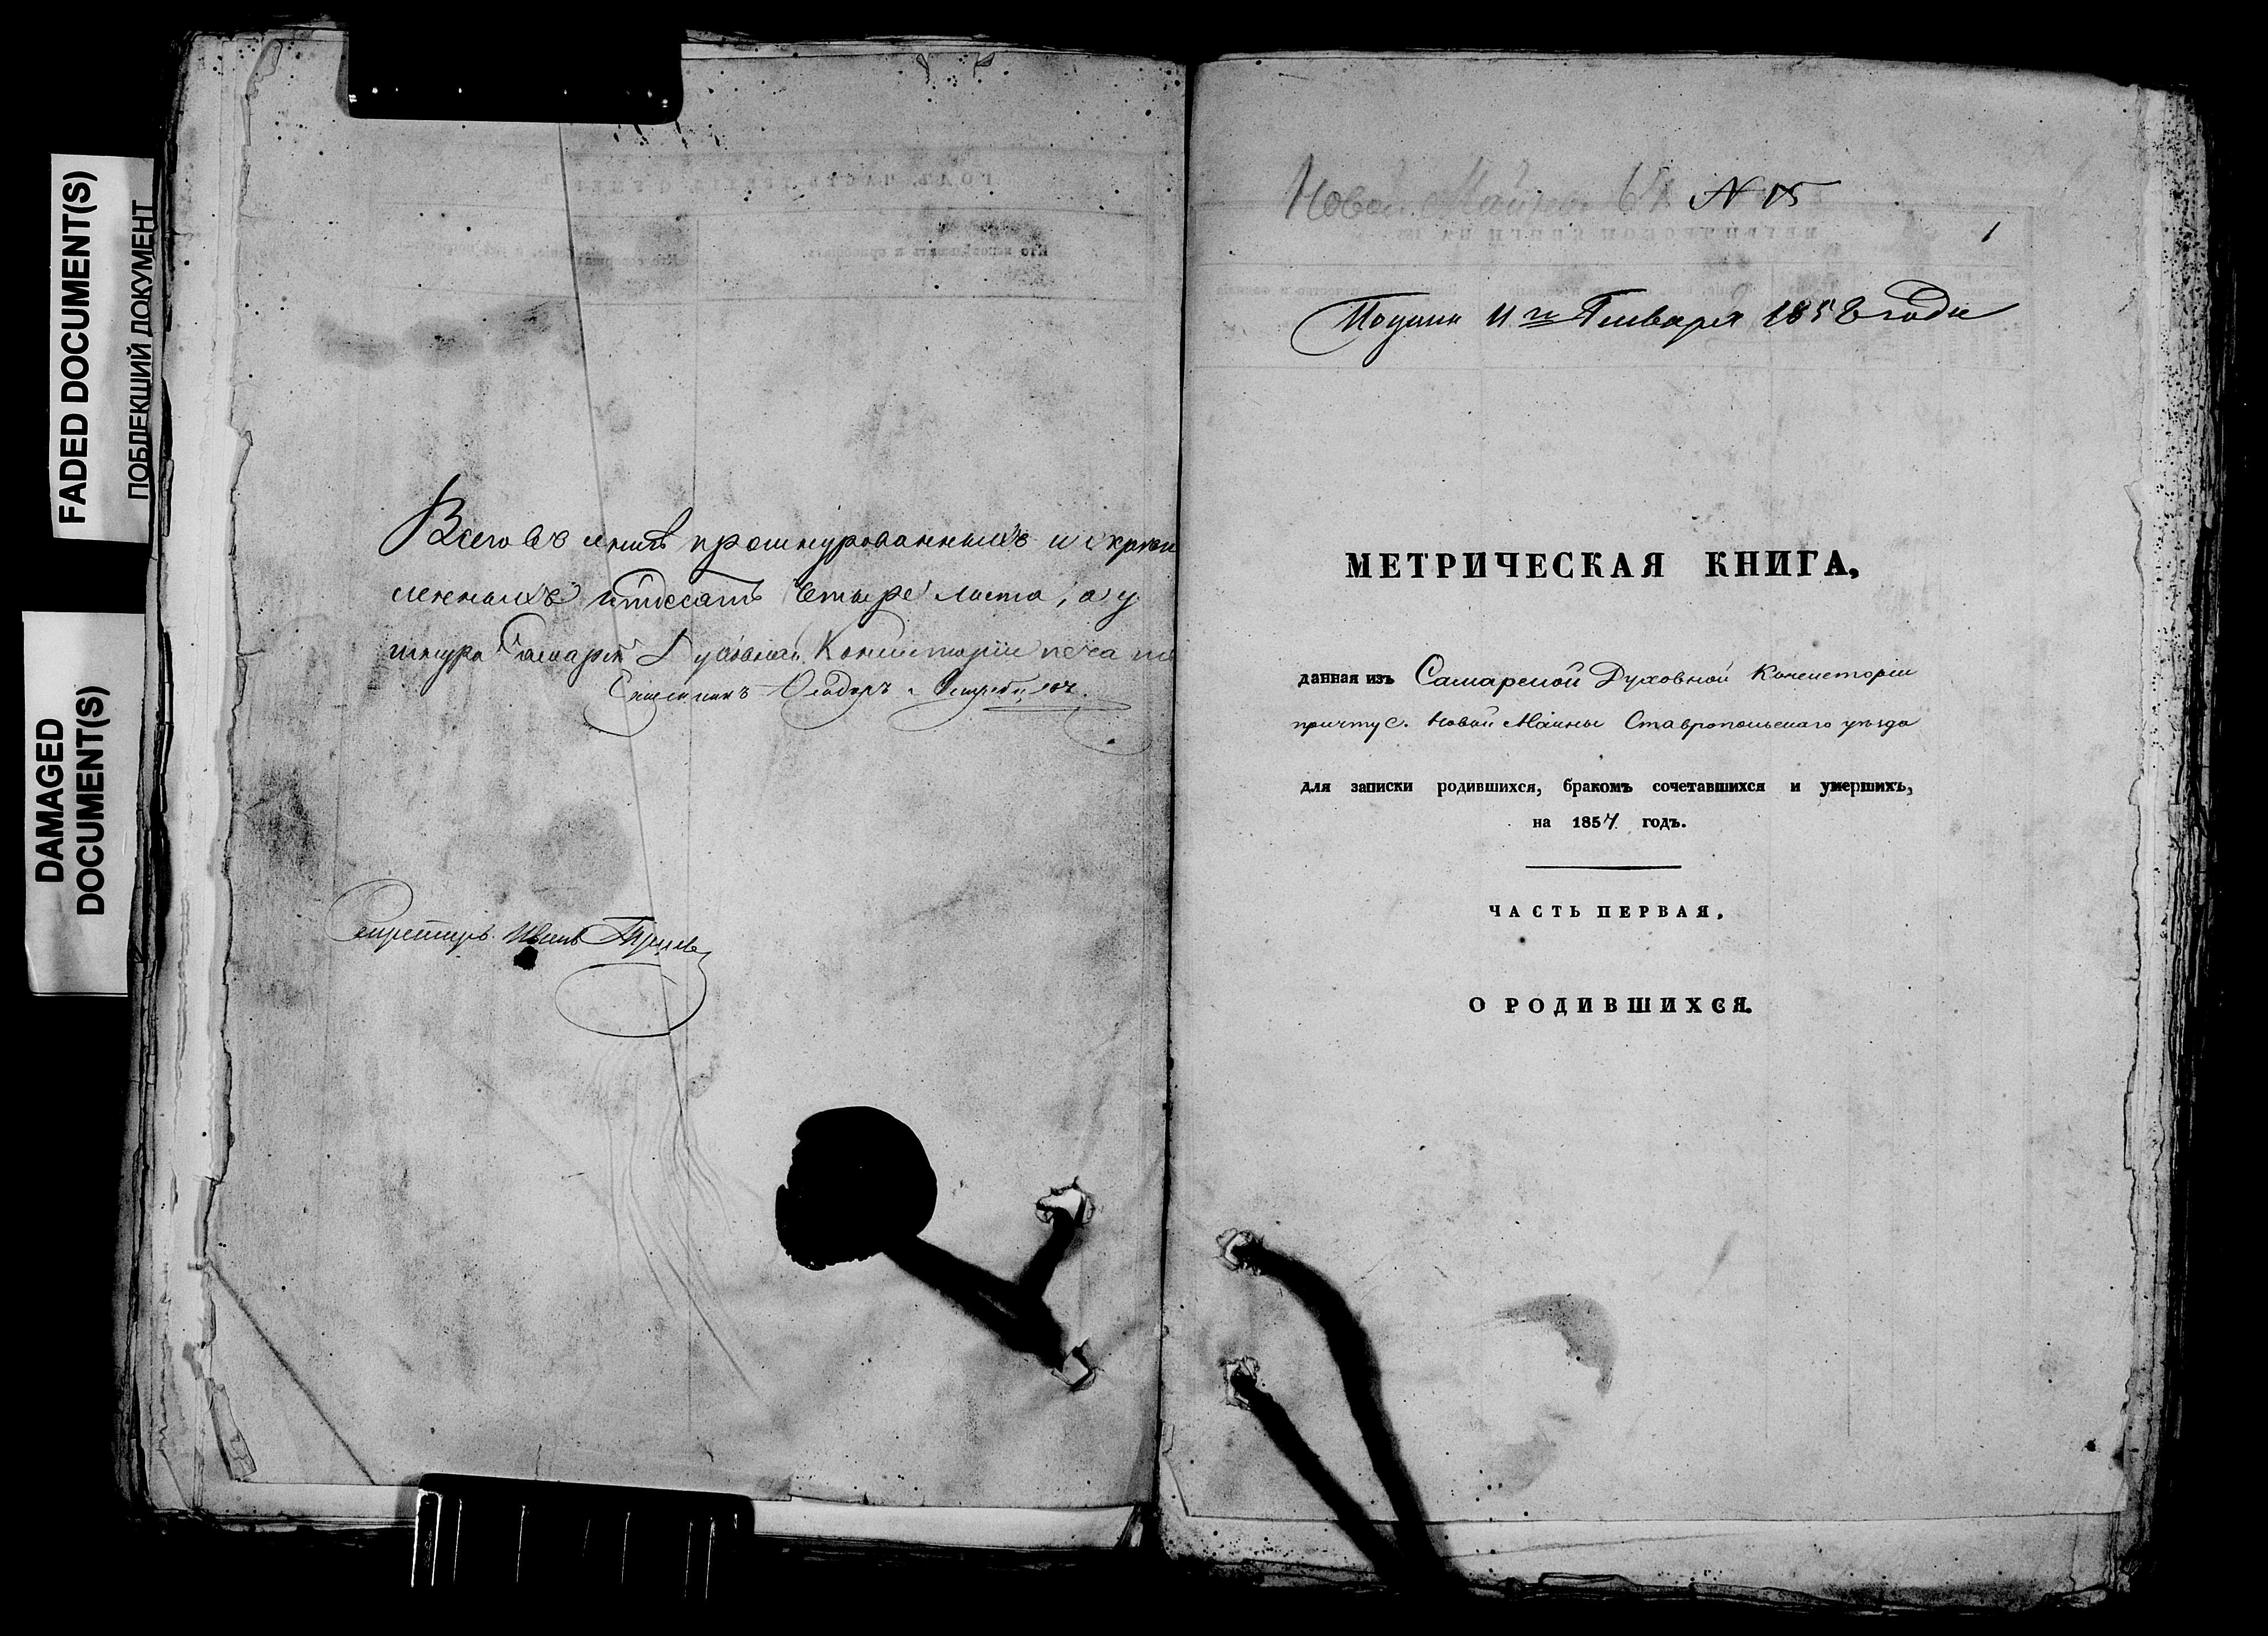 FADED DOCUMENT(S)
ПОБЛЕКШИЙ ДОКУМЕНТ
DAMAGED
DOCUMENT(S)
Всего въ книгѣ прошнурованныхъ и скрѣп
ленныхъ четыре листа, а у
шнура Духовной Консисторіи печа
Секретарь Иванъ
Новой Майны 64 N 15
1
11го Генваря 1858 года
МЕТРИЧЕСКАЯ КНИГА,
данная изъ Самарской Духовной Консисторіи
причту с. Новой Майны Ставропольскаго уѣзда
для записки родившихся, бракомъ сочетавшихся и умершихъ,
на 1857 годъ.
ЧАСТЬ ПЕРВАЯ.
О РОДИВШИХСЯ.